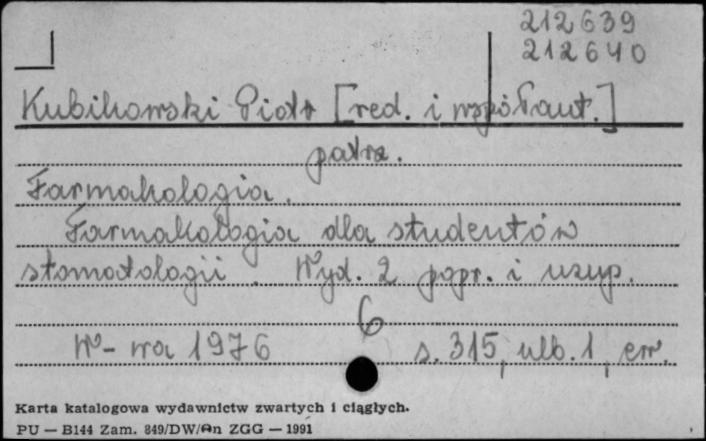 212639
212640
Kubikowski Piotr [red. i współaut.]
patrz.
Farmakologia.
Farmakologia dla studentów
stomatologii. Wyd. 2 popr. i uzup.
6
W-wa 1976 s. 315, ulb. 1, err.
Karta katalogowa wydawnictw zwartych i ciągłych.
PU — B144 Zam. 849/DW/An ZGG — 1991